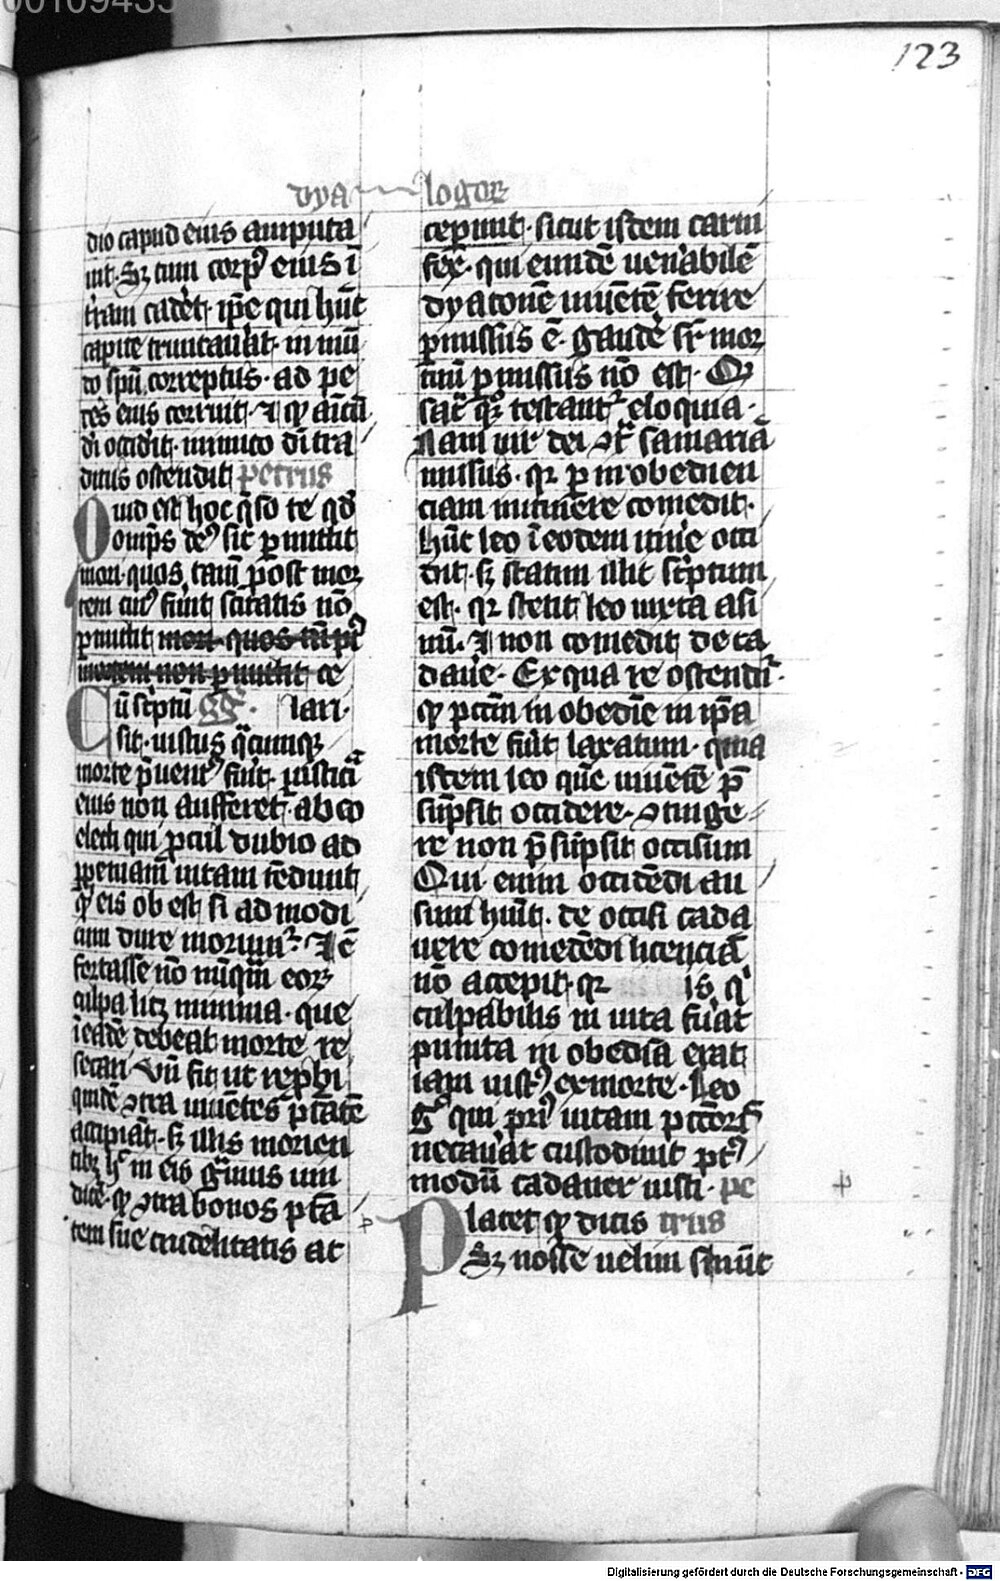 00109435
123
dya logor
dio capud eius amputa
uit. Sz cum corp⁹ eius ī
t̄ram cadēt. ip̄e qui hūc
capite truncau̓at. in mū
do spū correptus. ad pe
des eius corruit. ⁊ qꝫ
di occidit. inmico di̓ tra
ditus ostendit petrus
Quid est hoc q̄so te qd̓
omīps de⁹ sic ꝑmittit
mori. quos tam̄ post mor
tem cui⁹ sint scitatis nō
ꝑmittit mori quos tn̄ p⁹
mortem non ꝑmittit ce
Cū sc̓ptū gg̓. lari.
sit. iustus q̄cunqꝫ
morte p̄uent⁹ fu̓it. iusticia
eius non aufferet̓. ab eo
electi qui ꝓcul dubio ad
ꝑpetuam̄ uitam tēdunt
qꝫ eis ob est si ad modi
cum dure moriunt̓. ⁊ ē
fortasse nō nūq̄m eorꝝ
culpa licꝫ minima. que
ī eadē debeat morte re
secari Vn̄ fit ut rep̓bi
quidē ɔtra uiuentes p̄tātē
accipiāt. sꝫ illis morien
tibꝫ h̓ in eis g̓uius uin
dicet̓. qꝫ ɔtra bonos p̄tā
tem sue crudelitatis at
ceperunt. sicut istem carni
fex. qui eundē uen̓abilē
dyaconē uiuētē ferire
ꝑmissus ē. gaudē sr̄ mor
tuū ꝑmissus nō est. Qꝫ
sac̄ qꝫ testant̓ eloquia.
Nam uir dei ɔt̄ samariā
missus. qꝛ ꝑ inobedien
ciam in itinere comedit.
hūc leo ī eodem itin̓e occi
dit. sꝫ statim illic sc̓ptum
est. qꝛ stetit leo iuxta asi
nū. ⁊ non comedit de ca
dau̓e. Ex qua re ostendit̓.
qꝫ pc̄cm̄ inobedīe in ip̄a
morte fu̓it laxatum. quia
istem leo quē uiuētē p̄
sūpsit occidere. ɔtinge
re non p̄sūpsit occisum
Qui enim occidēdi au
sum hūit. de occisi cada
uere comedēdi licenciā
nō accepit. qꝛ is q̓
culpabilis in uita fu̓at
punita inobedīa erat
iam iust⁹ ex morte. Leo
g̓ qui pri⁹ uitam pc̄cor̄ꝭ
necau̓at custodiuit pt⁹
modū cadauer iusti. pe
Placet qꝫ dicis trus
Sꝫ nosse uelim si nūc
Digitalisierung gefördert durch die Deutsche Forschungsgemeinschaft - DFG